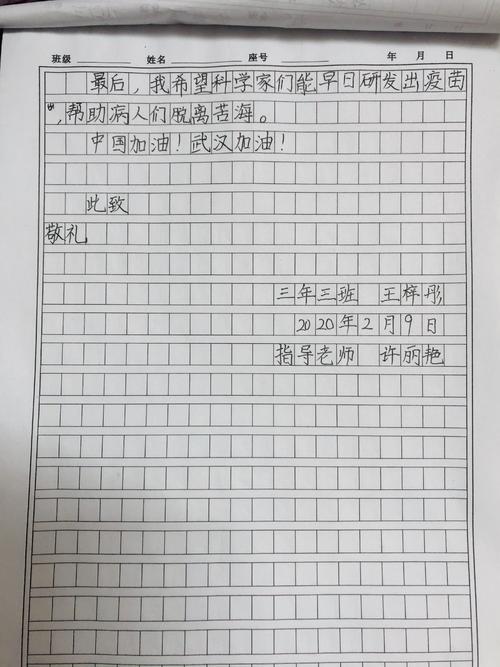 班级 姓名 座号 年 月 日
最后，我希望科学家们能早日研发出疫苗
，帮助病人们脱离苦海。
中国加油！武汉加油！
此致
敬礼
三年三班 王梓彤
2020年2月9日
指导老师 许丽艳